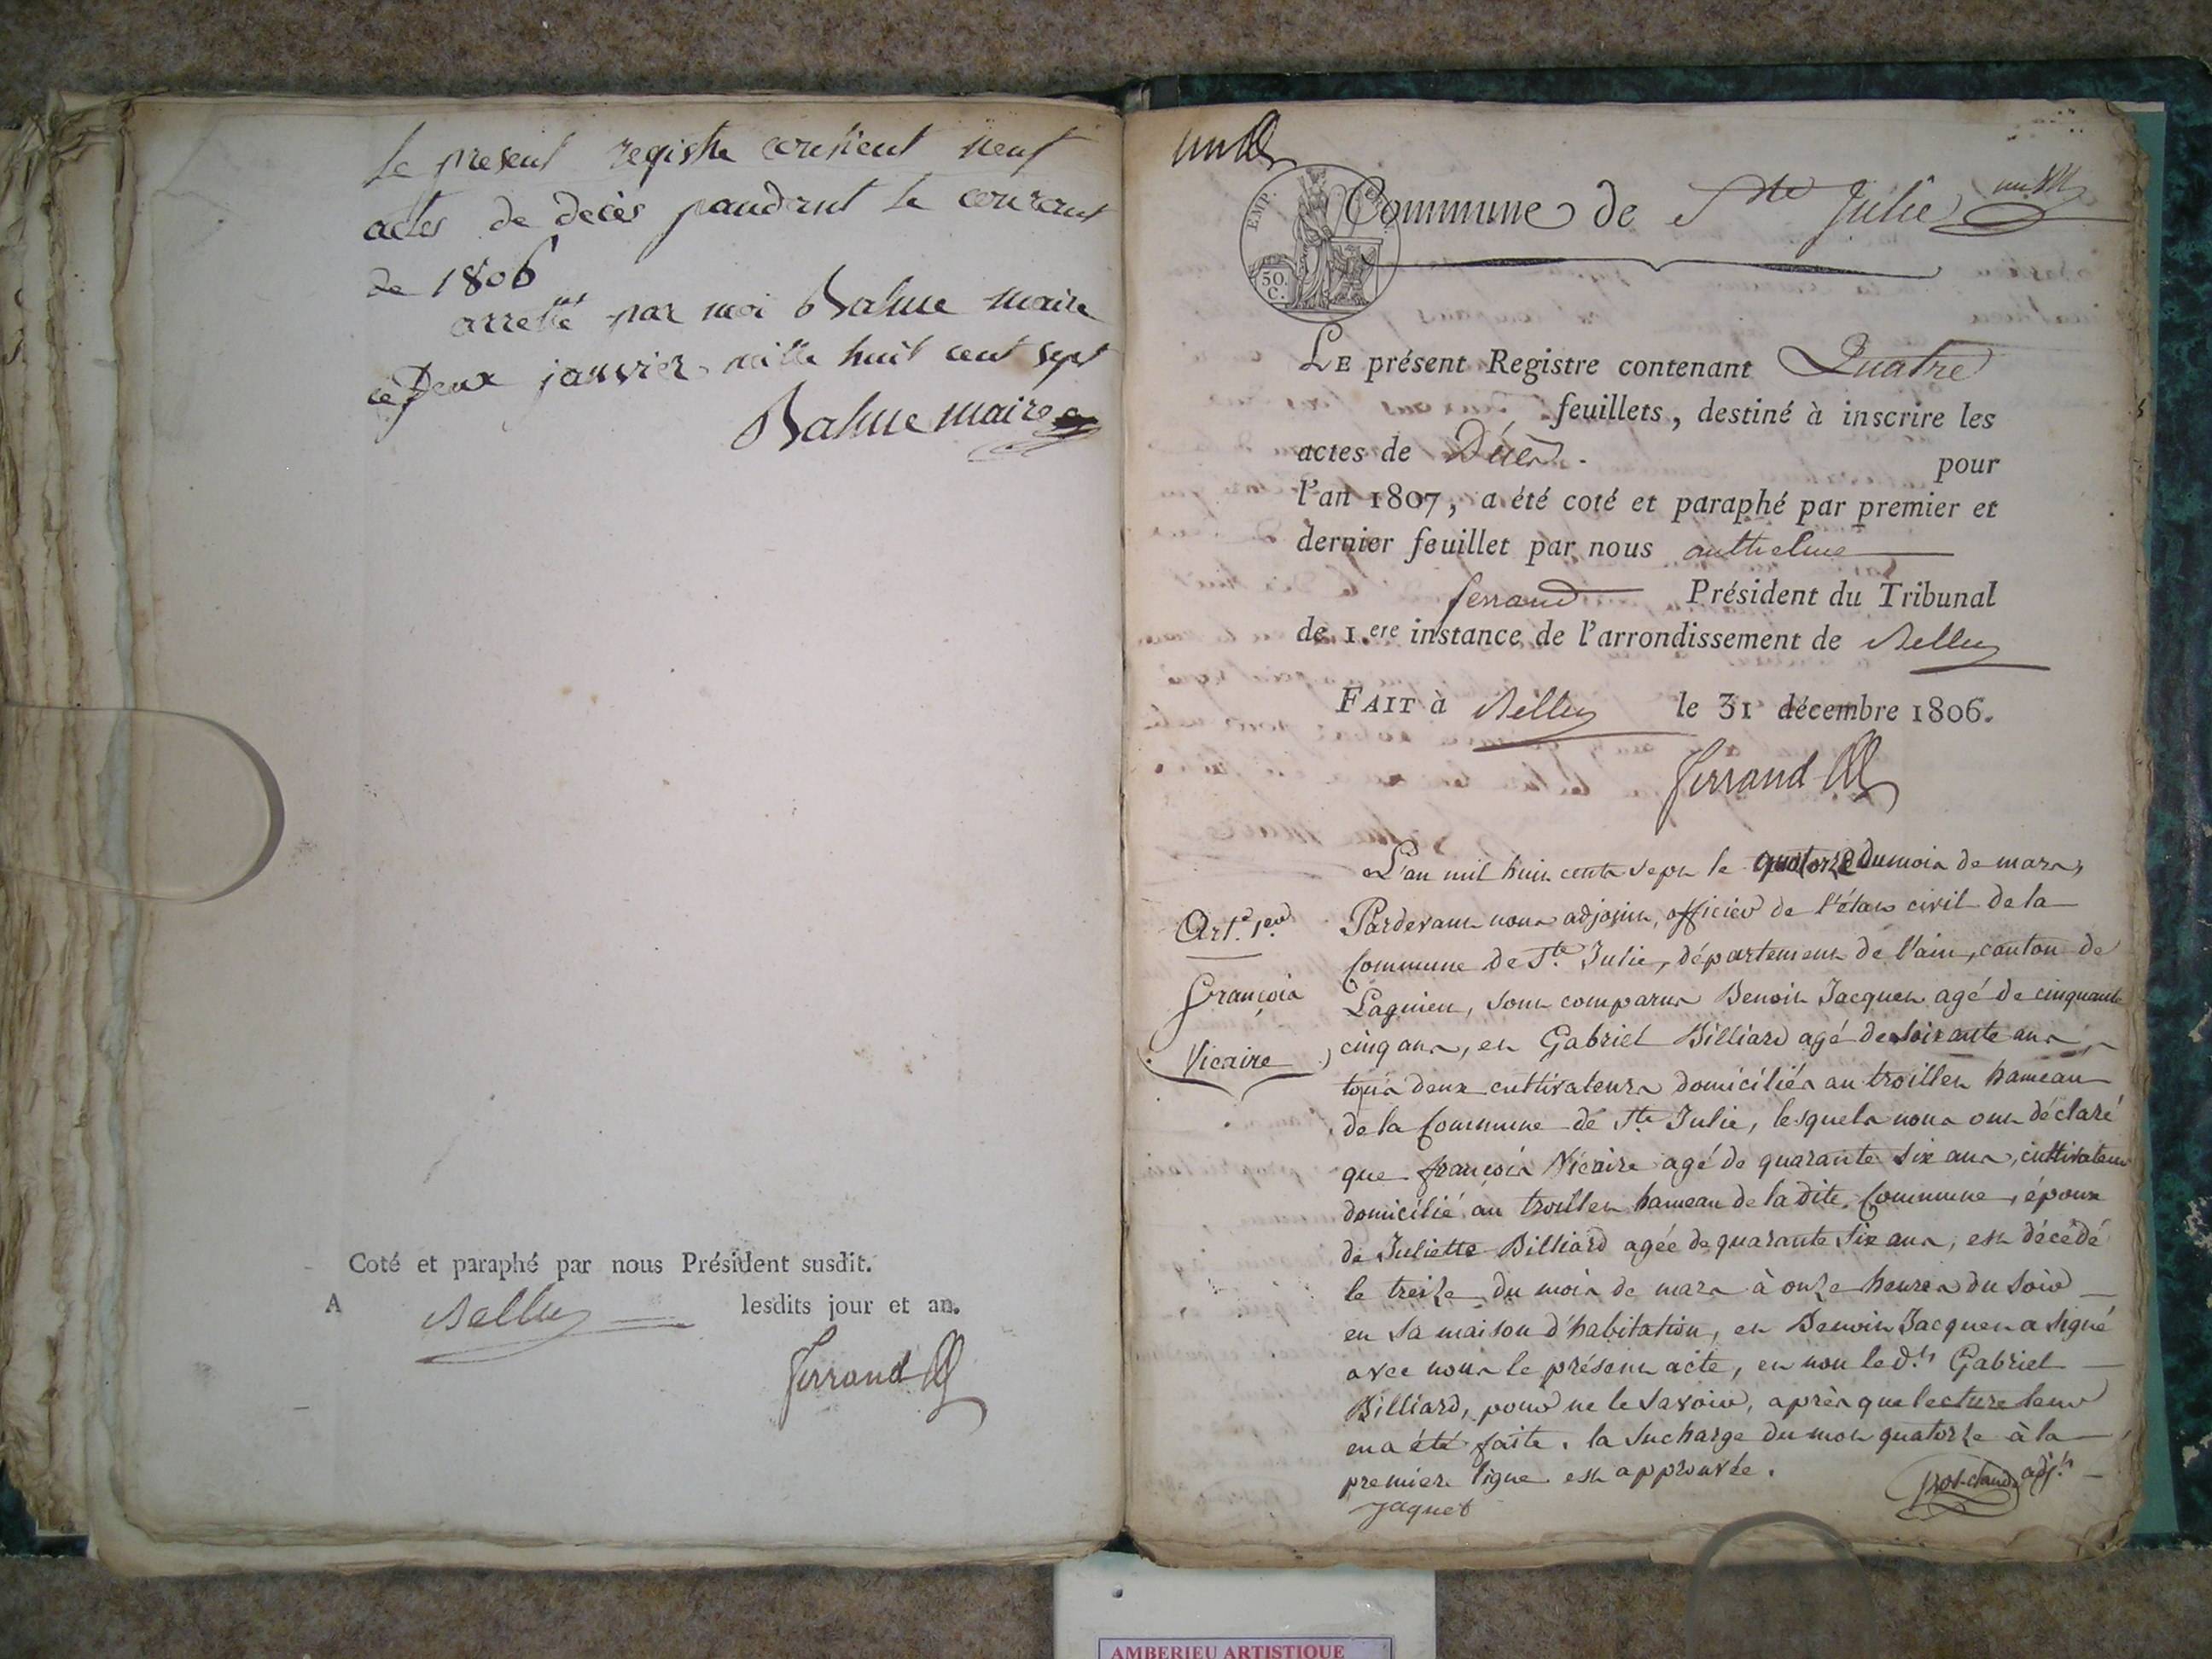 Le present registre contient neuf
actes de decès pandant le courant
de 1806
arresté par moi Bahue maire
ce Deux janvier mille huit cent sept
Bahue maire
Coté et paraphé par nous Président susdit.
A Belley lesdits jour et an.
Ferrand
un
EMP.
50.
C.
Commune de Ste Julie
LE présent Registre contenant Quatre
feuillets, destiné à inscrire les
actes de Décès. pour
l'an 1807, a été coté et paraphé par premier et
dernier feuillet par nous anthelme
ferrand Président du Tribunal
de 1.ere instance de l'arrondissement de Belley
FAIT à Belley le 31 décembre 1806.
Ferrand
L'an mil huit cents sept le quatorze du mois de mars,
Pardevant nous adjoint, officier de l'état civil de la
Commune de Ste Julie, département de l'ain, canton de
Lagnieu, sont comparus Benoit Jacquet agé de cinquante
cinq ans, et Gabriel Billiard agé de soixante ans,
tous deux cultivateurs domiciliés au trolliet hameau
de la Commune de Ste Julie, lesquels nous ont déclaré
que françois Vicaire agé de quarante six ans, cultivateur
domicilié au trolliet hameau de la dite Commune, époux
de Juliette Billiard agée de quarante six ans, est décédé
le treize du mois de mars à onze heures du soir
en sa maison d'habitation, et Benoit Jacquet a signé
avec nous le présent acte, et non led.t Gabriel
Billiard, pour ne le savoir, après que lecture leur
en a été faite. la surcharge du mot quatorze à la
premiere ligne est approuvée.
jaquet
adj.t
Art.e 1.er
François
Vicaire
AMBERIEU ARTISTIQUE